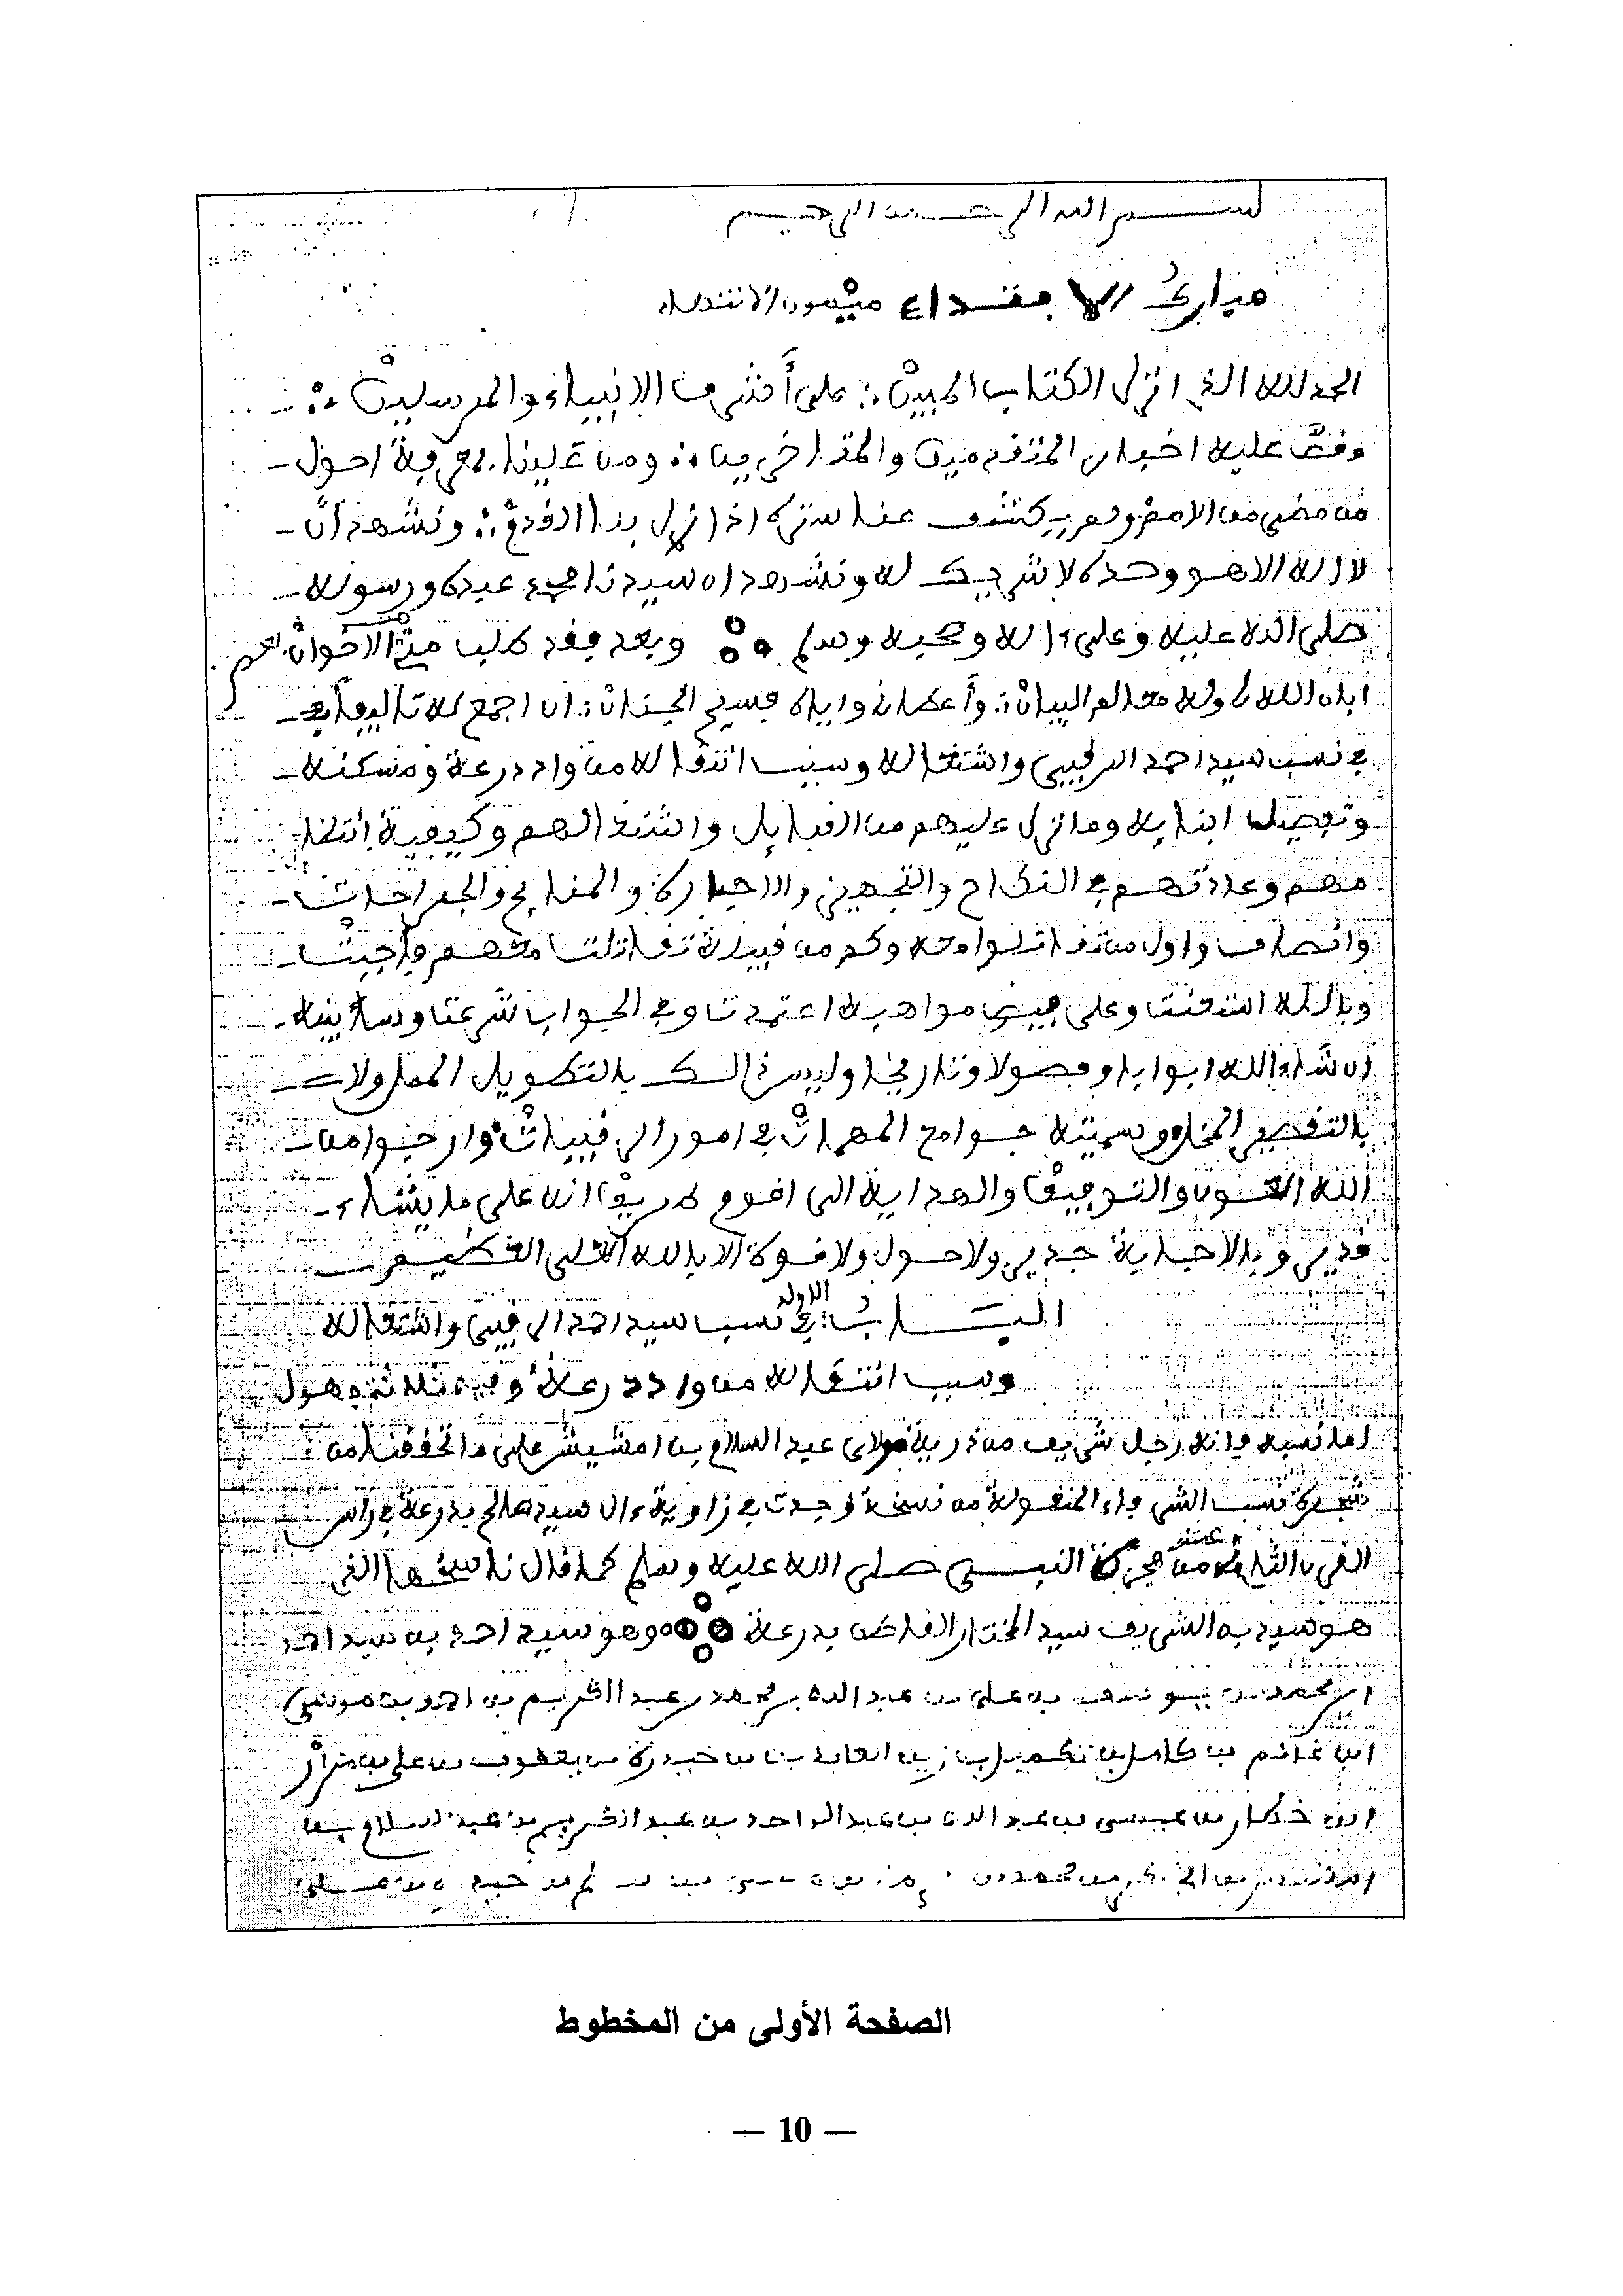 بسم الله الرحمن الرحيم
مبارك الابتداء ميمون الانتهاء
الحمد لله الذي انزل الكتاب المبين على أشرف الانبياء والمرسلين
وقص عليه اخبار المتقدمين والمتاخرين ومن علينا بمعرفة احول
من مضى من الامم ولم يكشف عنا ستره اذا نزل بنا القدم ونشهد أن
لا اله الا هو وحده لا شريك له ونشهد ان سيدنا محمد عبده ورسوله
صلى الله عليه وعلى ءاله وصحبه وسلم وبعد فقد طلب مني الاخوان
ابان الله لي وله معالم البيان وأعطان واياه فسيح الجنان ان اجمع له تاليفا
في نسب سيد احمد الرقيبي واشتغاله وسبب انتقاله من واد درعة ومسكنه
وتفصيل ابنايه وما نزل عليهم من القبايل واشتغالهم وكيفية
وعادتهم في النكاح والتجهيز والمنايح والجراحات
وانصاف واول من تقاتلوا معه وكم من قبيلة تقاتلت معهم فاجبت
وبالله استعنت وعلى فيض مواهبه اعتمدت وفي الجواب شرعت وسابينه
ان شاء الله ابوابا وفصولا وتاريخا وليس ذالك بالتطويل المملول ولا
بالتقصير المخل وسميته جوامع المهمات في امور الرقيبات وارجوا من
الله العون والتوفيق والهداية الى اقوم طريق انه على ما يشاء
قدير وبالاجابة جدير ولا حول ولا قوة الا بالله العلي العظيم
الباب الاول في نسب سيد احمد الرقيبي واشتغاله
وسبب انتقاله من واد درعة وفيه ثلاثة فصول
اما نسبه فانه رجل شريف من ذرية مولاي عبد السلام بن امشيش على ما تحققنا من
شجرة نسب الشرفاء المنقولة من نسخة وجدت في زاوية ءال سيد صالح بدرعة في راس
القرن الثاني عشر من هجرة النبي صلى الله عليه وسلم كما قال ناسخها الذي
هو سيد به الشريف سيد المختار القاضي بدرعة وهو سيد احمد بن سيد احمد
ابن محمد بن يوسف بن علي بن عبد الله بن محمد بن عبد الكريم بن احمد بن موسى
ابن غانم بن كامل بن تكميل بن زين العابدين بن حيدرة بن يعقوب بن علي بن مزار
ابن عيسى بن عبد الله بن عبد الواحد بن عبد الكريم بن عبد السلام بن
الصفحة الأولى من المخطوط
— 10 —